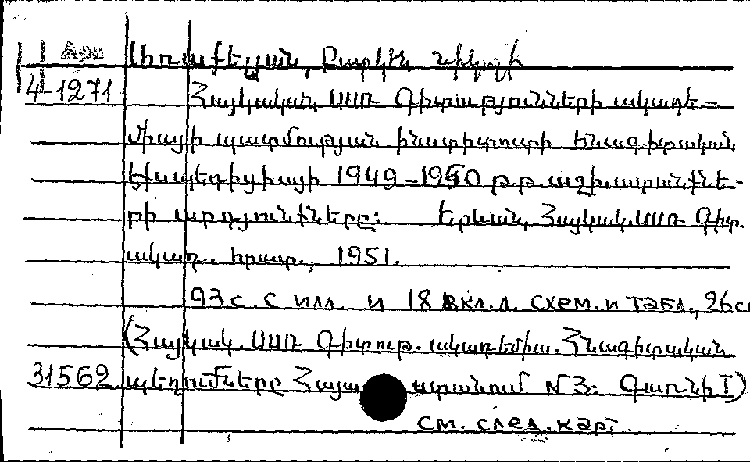 Առաքելյան, Բաբկեն Նիկոլի
4-1271 Հայկական ՍՍՌ Գիտությունների ակադե-
միայի պատմության ինստիտուտի հնագիտական
էքսպեդիցիայի 1949-1950 թ.թ. աշխատանքնե-
րի արդյունքները: Երևան, Հայկակ. ՍՍՌ Գիտ.
ակադ. հրատ., 1951.
93 с. с илл. и 18 вкл. л. схем. и табл., 26 см
(Հայկակ. ՍՍՌ Գիտութ. ակադեմիա. Հնագիտական
31562 պեղումները Հայաստանում №3: Գառնի I)
см. след. карт